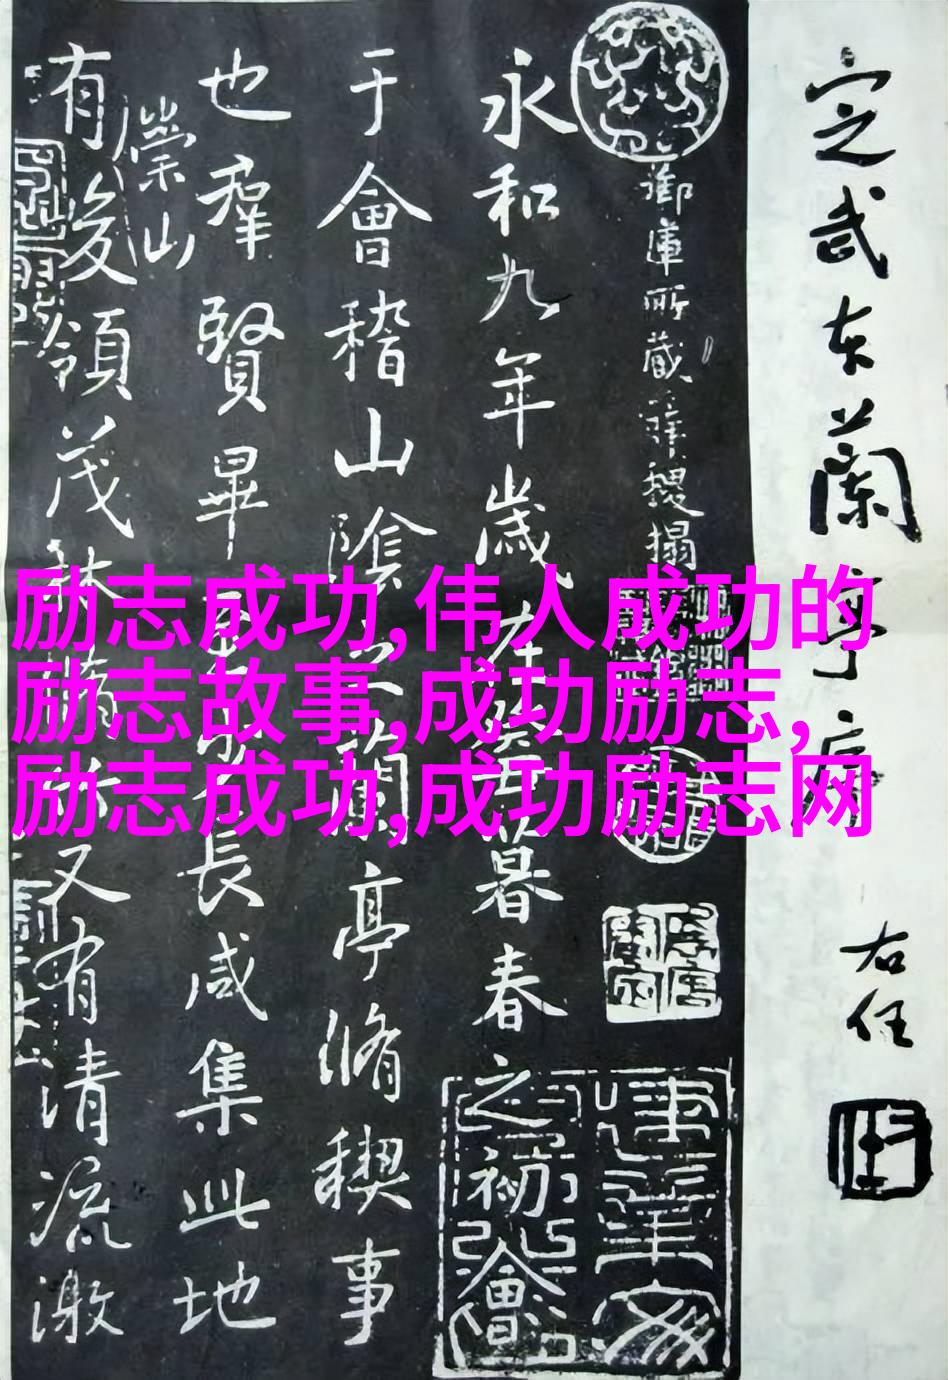 定武本蘭亭序
右任
御庫所藏薛稷搨
永和九年歲在癸丑暮春之初會
于會稽山陰之蘭亭脩稧事
也羣賢畢至少長咸集此地
崇山
有峻領茂林脩竹又有清流激
励志成功,伟人成功的
励志故事,成功励志,
励志成功,成功励志网